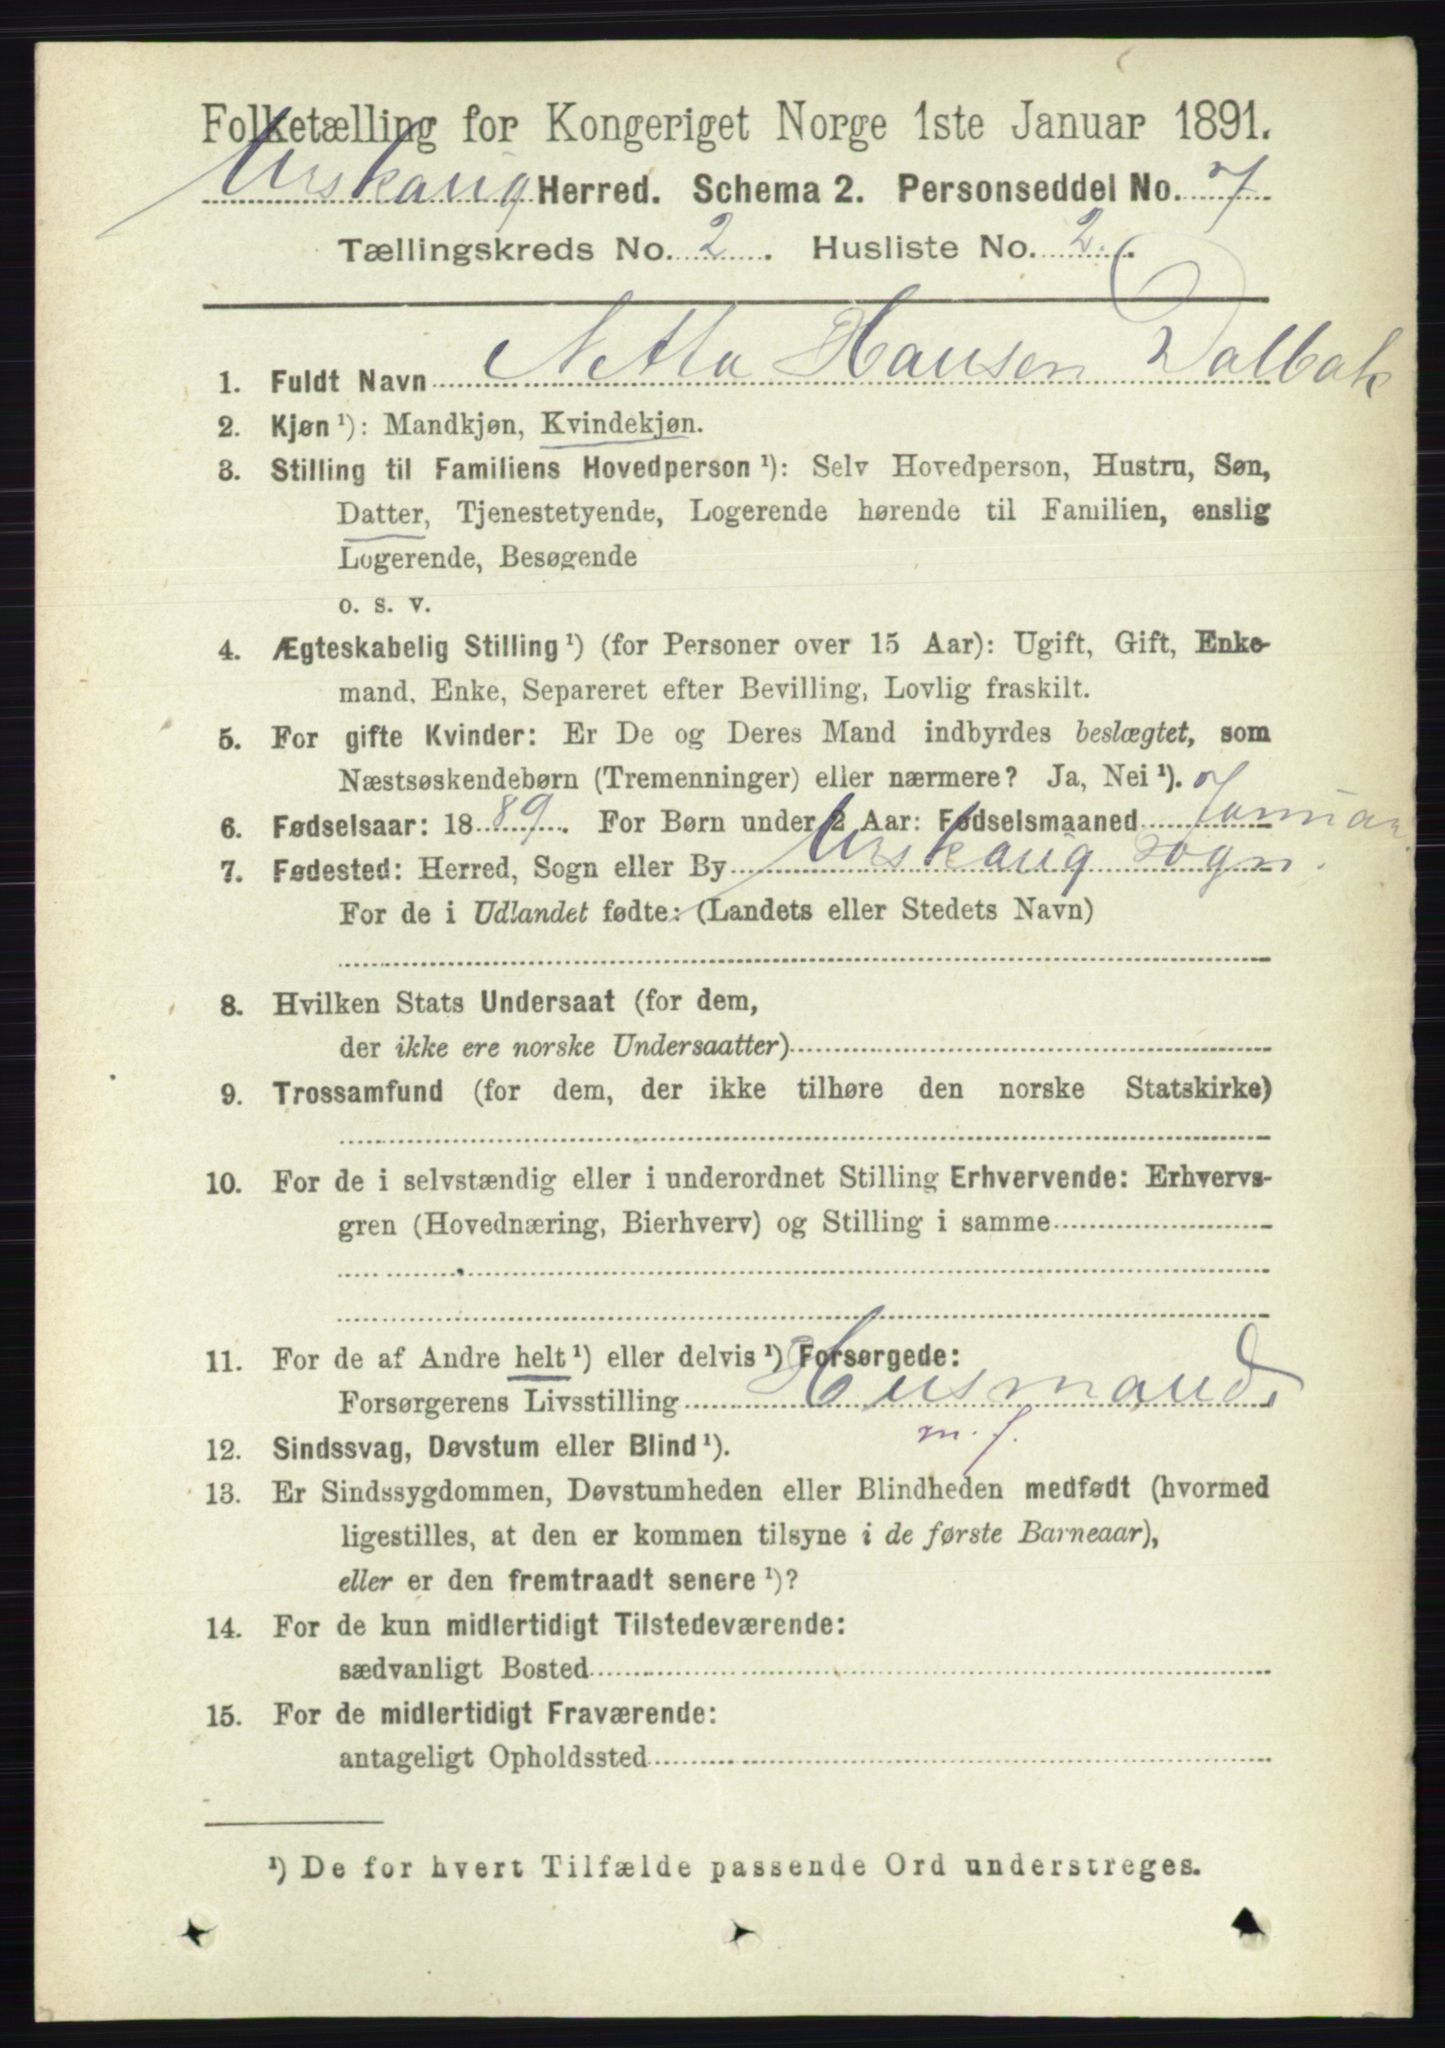 Folketælling for Kongeriget Norge 1ste Januar 1891.
Urskaug Herred. Schema 2. Personseddel No. 7
Tællingskreds No. 2. Husliste No. 2.
1. Fuldt Navn Netta Hansen Dalbak
2. Kjøn ¹): Mandkjøn, Kvindekjøn.
3. Stilling til Familiens Hovedperson ¹): Selv Hovedperson, Hustru, Søn,
Datter, Tjenestetyende, Logerende hørende til Familien, enslig
Logerende, Besøgende
o. s. v.
4. Ægteskabelig Stilling ¹) (for Personer over 15 Aar): Ugift, Gift, Enke-
mand, Enke, Separeret efter Bevilling, Lovlig fraskilt.
5. For gifte Kvinder: Er De og Deres Mand indbyrdes beslægtet, som
Næstsøskendebørn (Tremenninger) eller nærmere? Ja, Nei ¹).
6. Fødselsaar: 1889. For Børn under 2 Aar: Fødselsmaaned Januar
7. Fødested: Herred, Sogn eller By Urskaug Sogn.
For de i Udlandet fødte: (Landets eller Stedets Navn)
8. Hvilken Stats Undersaat (for dem,
der ikke ere norske Undersaatter)
9. Trossamfund (for dem, der ikke tilhøre den norske Statskirke)
10. For de i selvstændig eller i underordnet Stilling Erhvervende: Erhvervs-
gren (Hovednæring, Bierhverv) og Stilling i samme
11. For de af Andre helt ¹) eller delvis ¹) Forsørgede:
Forsørgerens Livsstilling Husmand
m. j.
12. Sindssvag, Døvstum eller Blind ¹).
13. Er Sindssygdommen, Døvstumheden eller Blindheden medfødt (hvormed
ligestilles, at den er kommen tilsyne i de første Barneaar),
eller er den fremtraadt senere ¹)?
14. For de kun midlertidigt Tilstedeværende:
sædvanligt Bosted
15. For de midlertidigt Fraværende:
antageligt Opholdssted
¹) De for hvert Tilfælde passende Ord understreges.